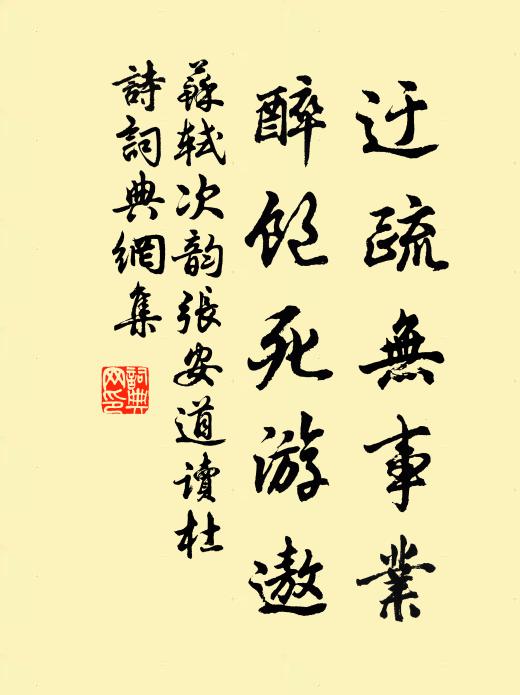 迂疏無事業
醉飽死游遨
蘇軾次韵張安道讀杜
詩詞典網集
詞典網印